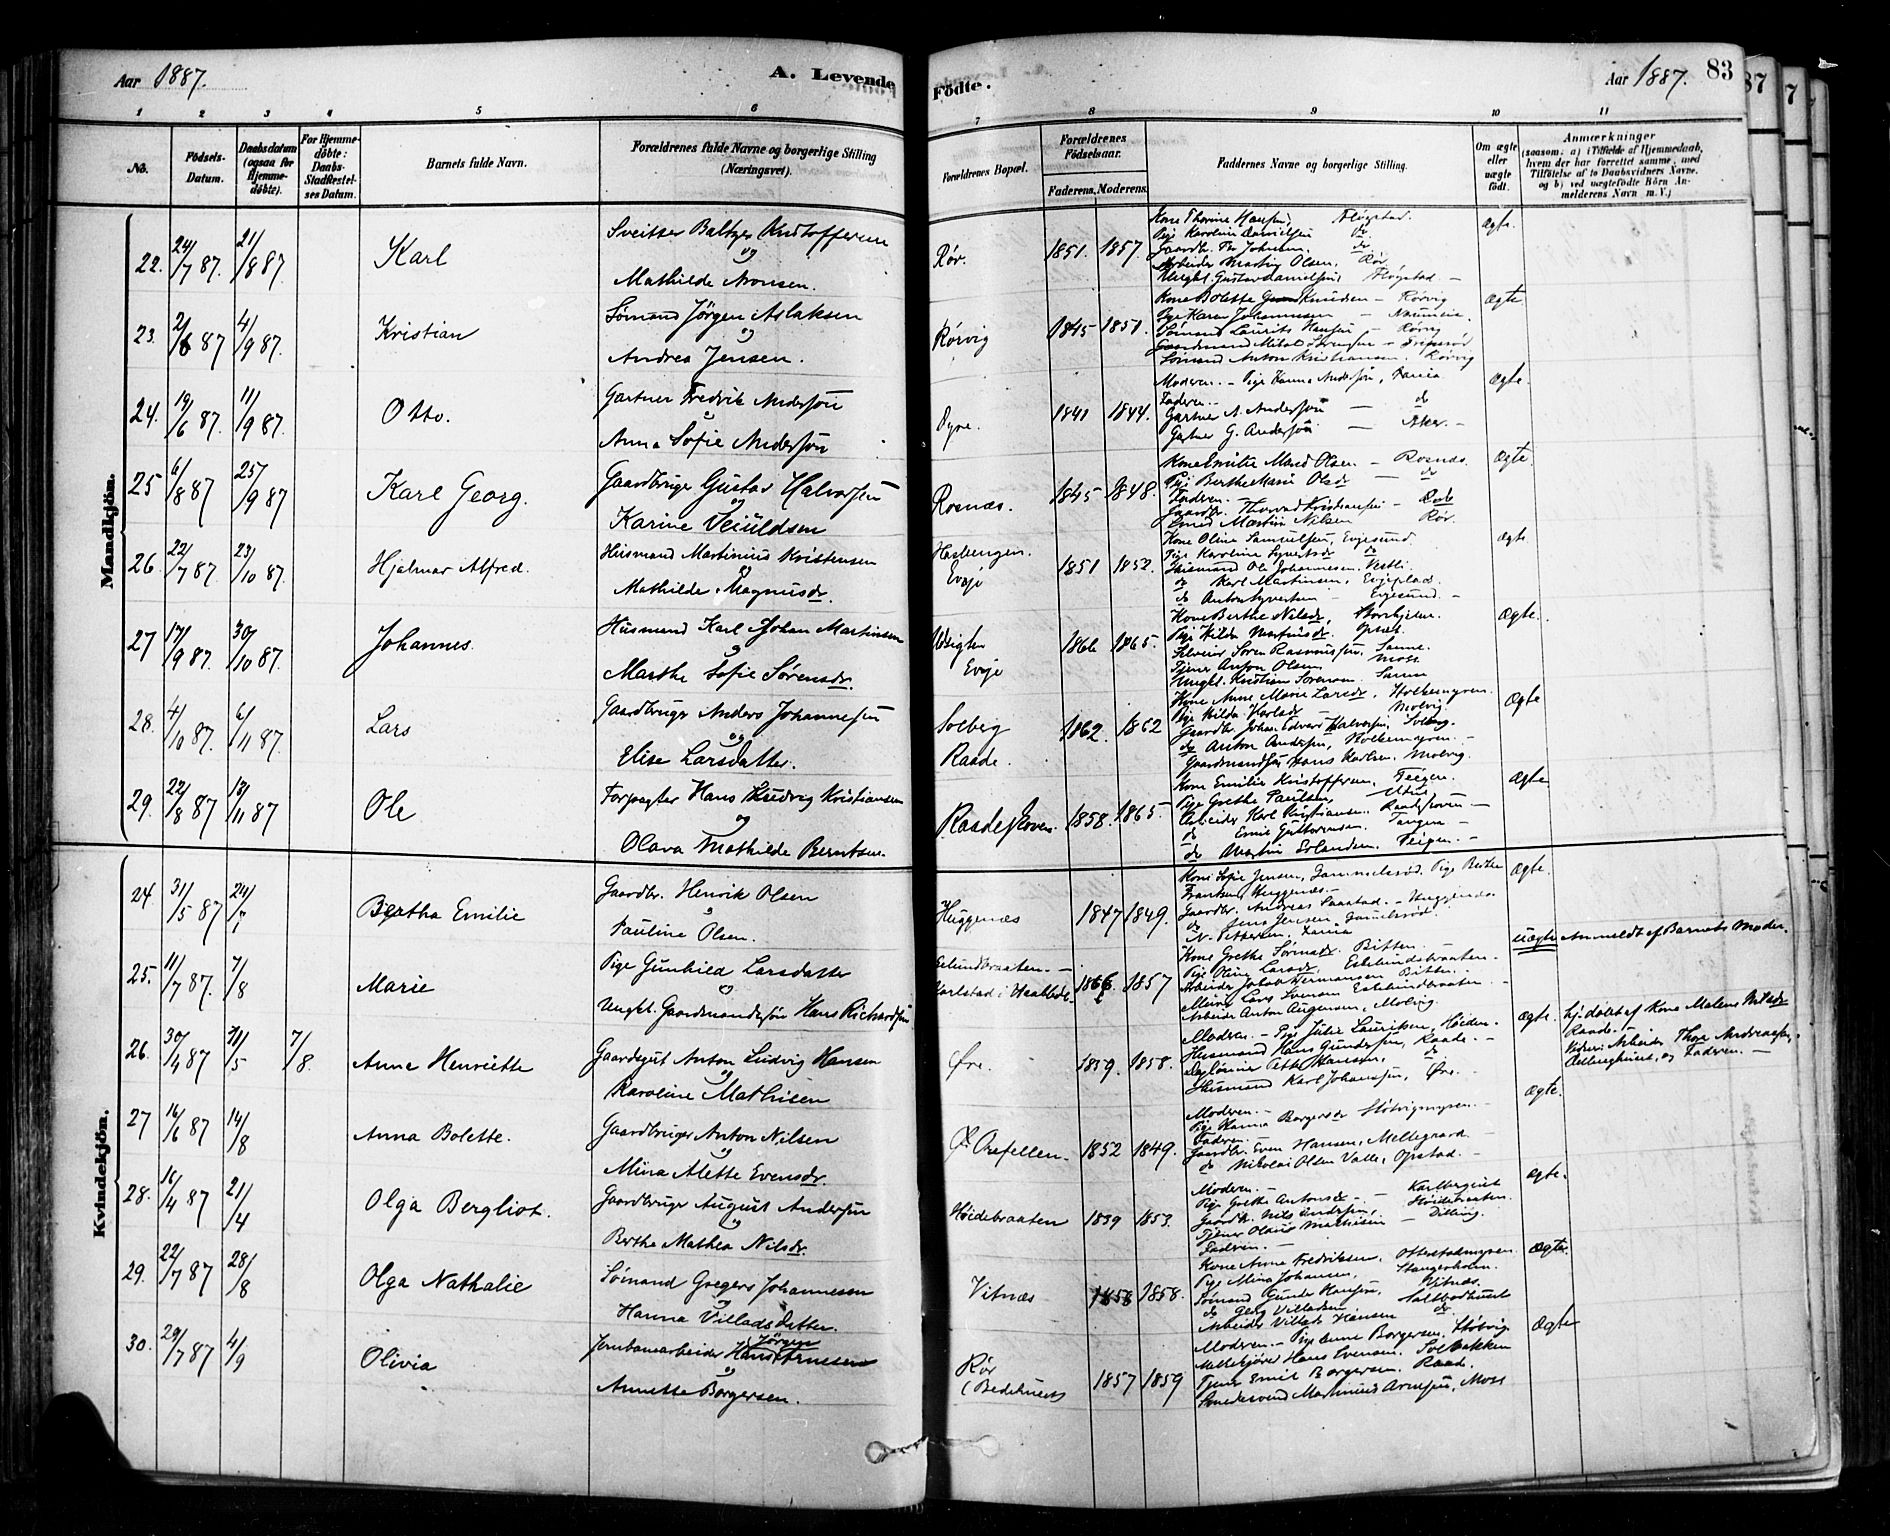 Aar 1887.
A. Levende Fødte.
Aar 1887.
83
1 2 3 4 5 6 7 8 9 10 11
No.
Fødsels-Datum.
Daabsdatum (ogsaa for Hjemmedøbte).
For Hjemmedøbte: Daabs-Stadfestelses Datum.
Barnets fulde Navn.
Forældrenes fulde Navne og borgerlige Stilling (Næringsvei).
Forældrenes Bopæl.
Forældrenes Fødselsaar.
Faderens. Moderens.
Faddernes Navne og borgerlige Stilling.
Om ægte eller uægte født.
Anmærkninger (saasom: a) i Tilfælde af Hjemmedaab, hvem der har forrettet samme, med Tilføielse af to Daabsvidners Navne, og b) ved uægtefødte Børn Anmelderens Navn m. V.)
Mandkjön.
22. 24/7 87. 21/8 87 Karl Sveitser Baltzer Kristoffersen og Mathilde Aronsen. Rør. 1851. 1857. Ægte.
Kone Thorine Hansen, Fløgstad.
Pige Karoline Danielsen do
Arbeider Martin Olsen, Rør.
Ungkl. Gustav Danielsen, Fløgstad
23. 2/6 87 4/9 87. Kristian Sømand Jørgen Aslaksen og Andrea Jensen. Rørvig 1845 1851. Ægte.
Kone Bolette Knudsen – Rørvig
Pige Karen Johannesen
Sømand Laurits Hansen – Rørvig
Sømand Anton Kristiansen. Rørvig
24. 19/6 87. 11/9 87. Otto. Gartner Fredrik Andersön og Anna Sofie Andersön 1841 1844. Ægte.
Moderen. – Pige Hanna Andersön,
Faderen. –
Gartner A. Andersön – do
Gartner G. Andersön – Aker.
25 6/8 87 25/9 87 Karl Georg. Gaardbruger Gustav Halvorsen og Karine Neiuldsen Rosnæs. 1845 1848. Ægte
Kone Emilie Olsen – Rosnæs.
Pige Berthe Marie Olsdr – do
Faderen. –
Smed Martin Nilsen Rør.
26. 22/7 87. 23/10 87. Hjalmar Alfred. Husmand Martinius Kristensen og Mathilde Magnusdr. Evje 1851 1852. Ægte.
Kone Oline Samuelsen, Evjesund.
Pige Karoline Syvertsdr do
Husmand Ole Johannesen. Vestli
do Karl Martinsen, Evjeplads.
do Anton Syvertsen – Evjesund. –
27 17/9 87. 30/10 87. Johannes. Husmand Karl Johan Martinsen og Marthe Sofie Sørensdr. Evje 1866 1865. Ægte.
Kone Berthe Nilsdr,
Pige Hilda Martinsdr.
Søren Rasmussen, Sanne.
Tjener Anton Olsen Moss
Ungkl. Kristian Sørensen. Sanne
28. 4/10 87. 6/11 87. Lars Gaardbruger Anders Johannesen og Elise Larsdatter. Solberg Raade. 1862. 1862 Ægte
Kone Anne Marie Larsdr,
Pige Hilda Karlsdr – Molvig
Gaardbr. Johan Edvard Halvorsen, Solberg.
do Anton Andersen,
Hans Karlsen, Molvig.
29. 22/8 87 13/11 87 Ole Forpagter Hans Ludvig Kristiansen og Olava Mathilde Berntsen. Raadeskoven. 1858. 1865. Ægte
Kone Emilie Kristoffersen, Teigen.
Pige Grethe Paulsen,
Arbeider Karl Kristiansen. Raadeskoven –
do Emil Guttormsen. Tangen –
do Martin Erlandsen. Teigen. –
Kvindekjön.
24. 31/5 87 24/7 Bertha Emilie Gaardbr. Henrik Olsen og Pauline Olsen. Huggenæs 1847 1849. Ægte.
Kone Sofie Jensen, Gammelsrød. Pige Berthe
Frantsen, Huggenæs. –
Gaardbr. Andreas Saastad. – Huggenæs
do Jens Jensen, Gamelsrød.
N. Pettersen,
25. 11/7 87. 7/8 Marie Pige Gunhild Larsdatter og Ungkl. Gaardmandssøn Hans Richardsen Karlstad i Vaaler 1866 1857 uægte Anmeldt af Barnets Moder.
Kone Grethe Sørnsdr. Bitten –
Pige Oline Larsdr,
Arbeider Jakob Hermansen Bitten –
Arbeider Anton Jørgensen, Molvig.
26. 30/4 87 31/5 7/8. Anne Henriette Gaardsgut Anton Ludvig Hansen og Karoline Mathisen Øre. 1859. 1858. Ægte. Hj. døbt af Kone Malene Nilsdr Raade. – Vidner: Arbeider Thore Andreassen, og Faderen. –
Moderen – Pige Julie Lauritsen, Høiden.
Husmand Hans Gundersen, Raade. –
Petter Hansen, do
Husmand Karl Johansen, Øre. –
27 16/6 87 14/8 Anna Bolette. Gaardbruger Anton Nilsen og Mina Alette Evensdr. 1852 1849. Ægte.
Moderen. –
Pige Hanna Borgersdr Støtvigmyren. –
Faderen. –
Gaardbr. Even Hansen, Mellegaard –
do Nikolai Olsen Valle, Opstad. –
28. 16/4 87 21/4 Olga Bergliot. Gaardbruger August Andersen og Berthe Mathea Nilsdr. Høidebraaten 1839 1853. Ægte.
Moderen. –
Pige Grethe Antonsdr – Karlbergsit
Gaardbr. Nils Andersen, Høidebraaten.
Tjener Olaus Mathisen – Dilling.
Faderen. –
29. 22/7 87 28/8 Olga Nathalie Sømand Gregers Johannesen og Hanna Villadsdatter. Vitnæs 1858 1858. Ægte.
Kone Anne Fredriksen,
Pige Mina Johansen, Stangerholmen.
Sømand Gunder Hansen, Vitnæs.
do Georg Villadsen
Arbeider Villads Hansen do
30. 29/7 87 4/9 Olivia Jernbanearbeider Hans Jørgen Arnesen og Annette Borgersen. Rør (Bedehuset) 1857 1859 Ægte
Moderen – Pige Anne Borgersen. Støtvig
Møllekjører Hans Evensen. Solbakken
Tjener Emil Borgersen. Raade.
Smedesvend Martinius Arnesen, Moss